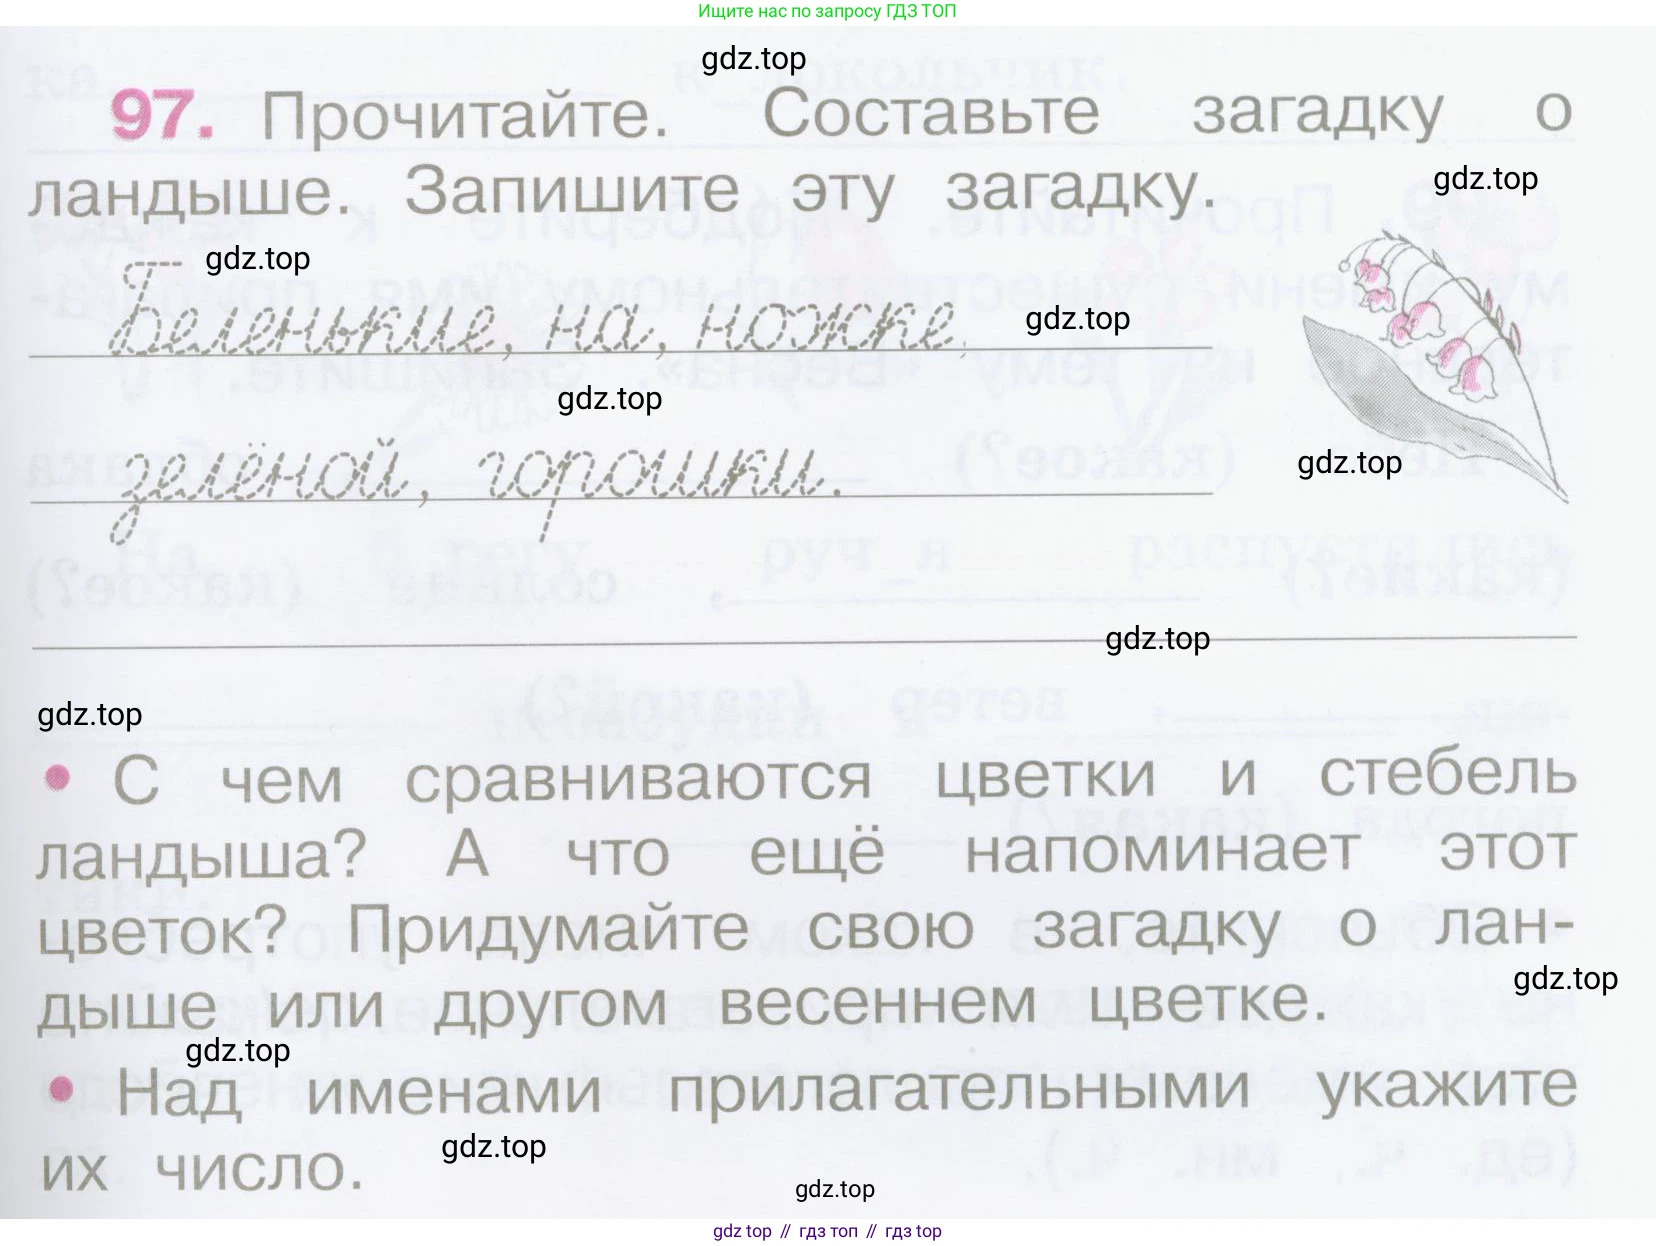 Ищите нас по запросу ГДЗ ТОП
gdz.top
97. Прочитайте. Составьте загадку о
ландыше. Запишите эту загадку.
gdz.top
gdz.top
Беленькие, на, ножке,
gdz.top
gdz.top
зелёной, горошки.
gdz.top
gdz.top
gdz.top
• С чем сравниваются цветки и стебель
ландыша? А что ещё напоминает этот
цветок? Придумайте свою загадку о лан-
дыше или другом весеннем цветке.
gdz.top
gdz.top
• Над именами прилагательными укажите
их число.
gdz.top
gdz.top
gdz top // гдз топ // gdz top